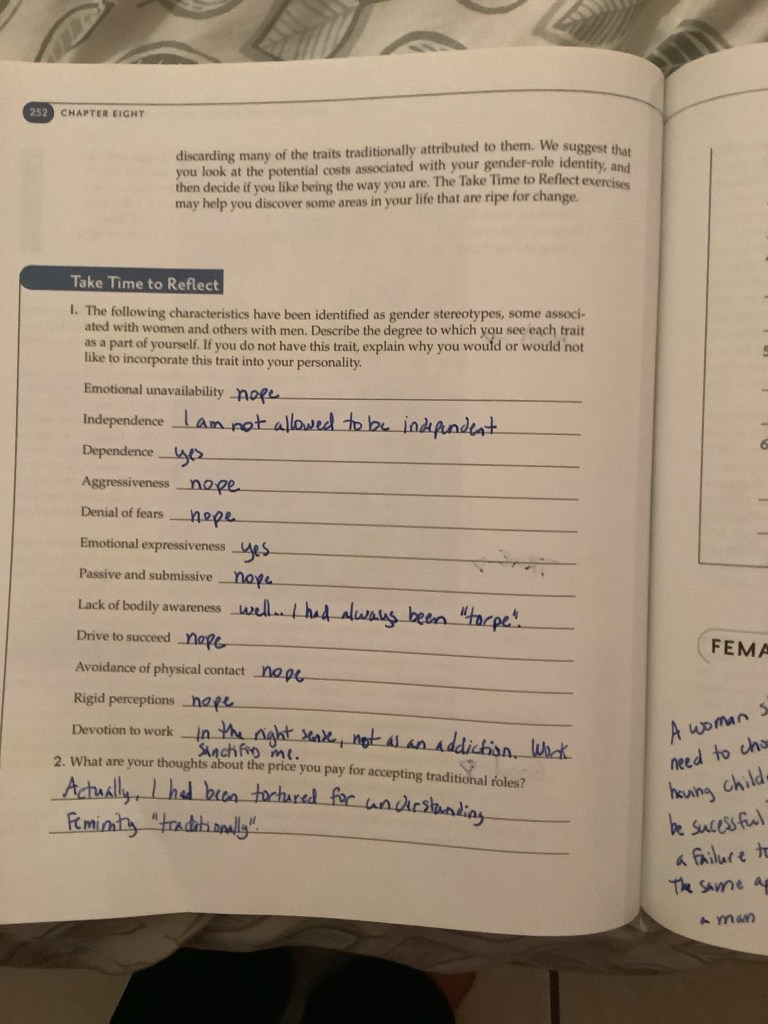 252 CHAPTER EIGHT
discarding many of the traits traditionally attributed to them. We suggest that
you look at the potential costs associated with your gender-role identity, and
then decide if you like being the way you are. The Take Time to Reflect exercises
may help you discover some areas in your life that are ripe for change.
Take Time to Reflect
1. The following characteristics have been identified as gender stereotypes, some associ-
ated with women and others with men. Describe the degree to which you see each trait
as a part of yourself. If you do not have this trait, explain why you would or would not
like to incorporate this trait into your personality.
Emotional unavailability nope
Independence I am not allowed to be independent
Dependence yes
Aggressiveness nope
Denial of fears nope
Emotional expressiveness yes
Passive and submissive nope
Lack of bodily awareness well... I had always been "torpe".
Drive to succeed nope
Avoidance of physical contact nope
Rigid perceptions nope
Devotion to work in the right sense, not as an addiction. Work
sanctifies me.
2. What are your thoughts about the price you pay for accepting traditional roles?
Actually, I had been tortured for understanding
Feminity "traditionally".
5
6
FEMA
A woman s
need to cho
having child
be sucessful
a failure to
The same ap
a man